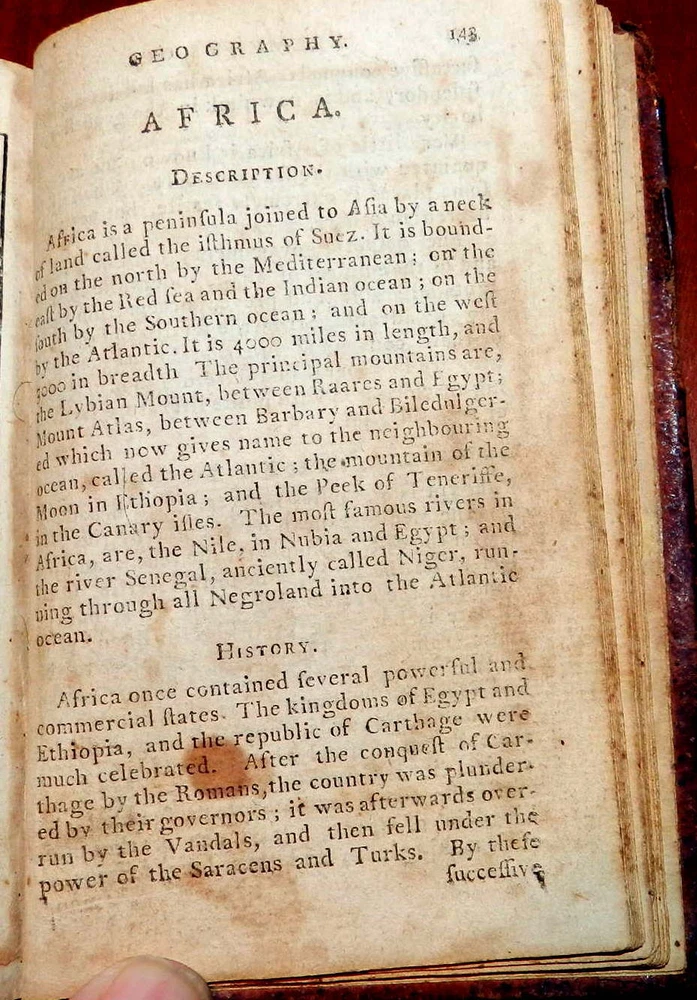 GEOGRAPHY. 143
AFRICA.
DESCRIPTION.
Africa is a peninſula joined to Aſia by a neck
of land called the iſthmus of Suez. It is bound-
ed on the north by the Mediterranean; on the
eaſt by the Red ſea and the Indian ocean; on the
ſouth by the Southern ocean; and on the weſt
by the Atlantic. It is 4000 miles in length, and
in breadth The principal mountains are,
the Lybian Mount, between Raares and Egypt;
Mount Atlas, between Barbary and Biledulger-
ed which now gives name to the neighbouring
ocean, called the Atlantic; the mountain of the
Moon in Ethiopia; and the Peek of Teneriffe,
in the Canary iſles. The moſt famous rivers in
Africa, are, the Nile, in Nubia and Egypt; and
the river Senegal, anciently called Niger, run-
ning through all Negroland into the Atlantic
ocean.
HISTORY.
Africa once contained ſeveral powerful and
commercial ſtates. The kingdoms of Egypt and
Ethiopia, and the republic of Carthage were
much celebrated. After the conqueſt of Car-
thage by the Romans, the country was plunder-
ed by their governors; it was afterwards over-
run by the Vandals, and then fell under the
power of the Saracens and Turks. By theſe
ſucceſſive